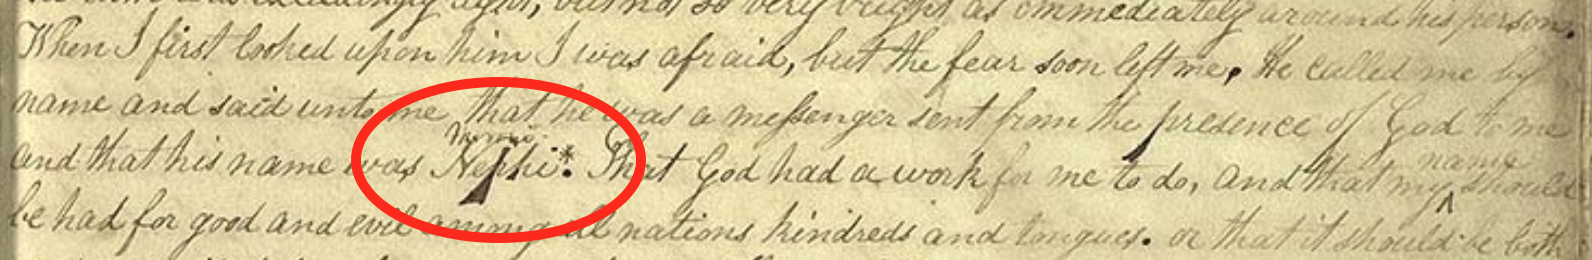 exceedingly light, but not so very bright as immediately around his person.
When I first looked upon him I was afraid, but the fear soon left me, He called me by
name and said unto me that he was a messenger sent from the presence of God to me
Moroni
and that his name was Nephi.* That God had a work for me to do, and that my name should
be had for good and evil among all nations kindreds and tongues. or that it should be both